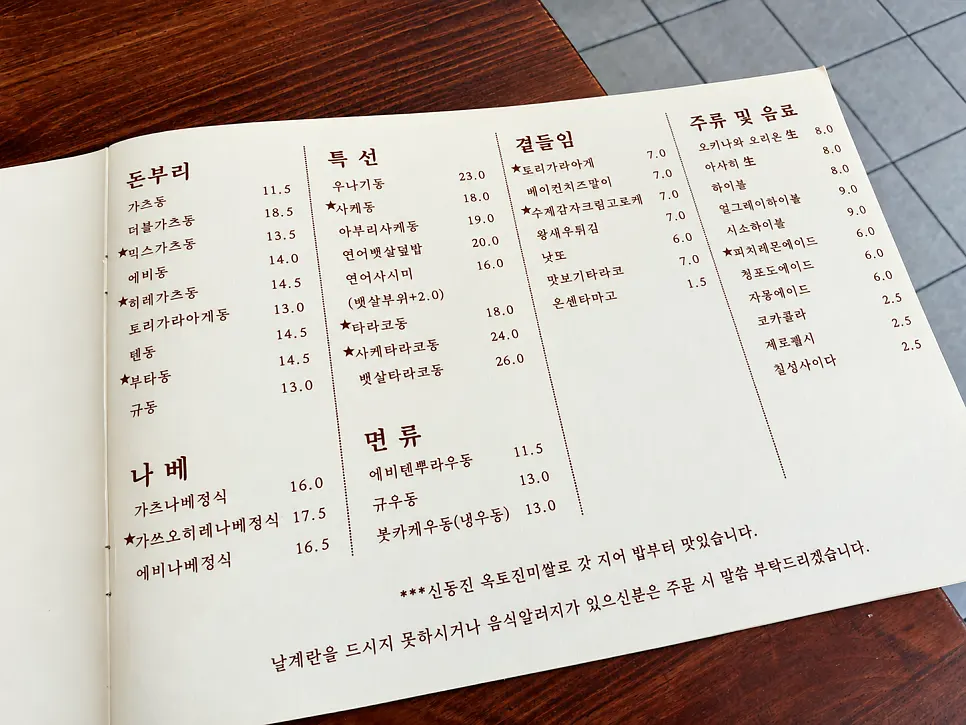 돈부리
가츠동 11.5
더블가츠동 18.5
★믹스가츠동 13.5
에비동 14.0
★히레가츠동 14.5
토리가라아게동 13.0
텐동 14.5
★부타동 14.5
규동 13.0
나베
가츠나베정식 16.0
★가쓰오히레나베정식 17.5
에비나베정식 16.5
특선
우나기동 23.0
★사케동 18.0
아부리사케동 19.0
연어뱃살덮밥 20.0
연어사시미 16.0
(뱃살부위+2.0)
★타라코동 18.0
★사케타라코동 24.0
뱃살타라코동 26.0
면류
에비텐뿌라우동 11.5
규우동 13.0
붓카케우동(냉우동) 13.0
곁들임
★토리가라아게 7.0
베이컨치즈말이 7.0
★수제감자크림고로케 7.0
왕새우튀김 7.0
낫또 6.0
맛보기타라코 7.0
온센타마고 1.5
주류 및 음료
오키나와 오리온 生 8.0
아사히 生 8.0
하이볼 8.0
얼그레이하이볼 9.0
시소하이볼 9.0
★피치레몬에이드 6.0
청포도에이드 6.0
자몽에이드 6.0
코카콜라 2.5
제로펩시 2.5
칠성사이다 2.5
***신동진 옥토진미쌀로 갓 지어 밥부터 맛있습니다.
날계란을 드시지 못하시거나 음식알러지가 있으신분은 주문 시 말씀 부탁드리겠습니다.